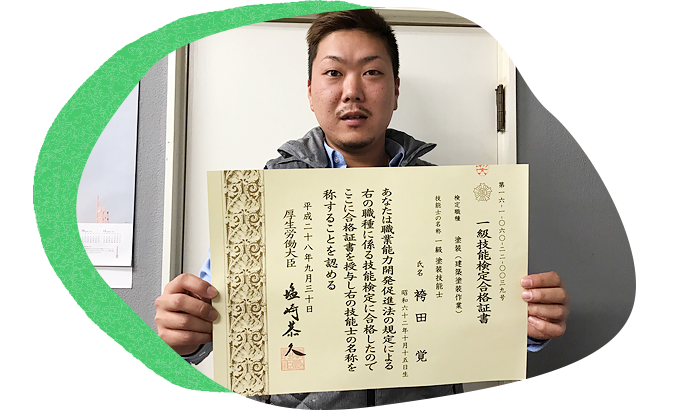 第一六-一-〇六〇-二二-〇〇三九号
一級技能検定合格証書
検定職種　塗装（建築塗装作業）
技能士の名称　一級 塗装技能士
氏名　袴田　覚
昭和六十二年十月十五日生
あなたは職業能力開発促進法の規定による
右の職種に係る技能検定に合格したので
ここに合格証書を授与し右の技能士の名称を
称することを認める
平成二十八年九月三十日
厚生労働大臣　塩崎恭久